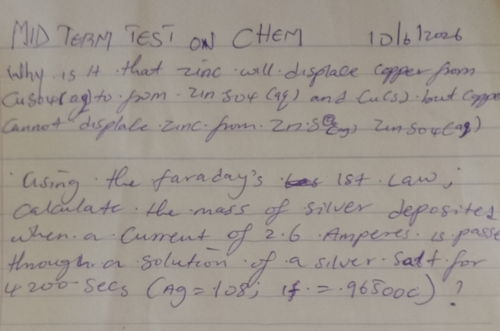 MID TERM TEST ON CHEM 10/6/2026
Why is it that zinc will displace copper from
CuSO4(aq) to form ZnSO4(aq) and Cu(s) but copper
cannot displace zinc from ZnSO4(aq)
Using the faraday's 1st law,
Calculate the mass of silver deposited
when a current of 2.6 Amperes is passe
through a solution of a silver salt for
4200 secs (Ag = 108; 1f = 96500c)?